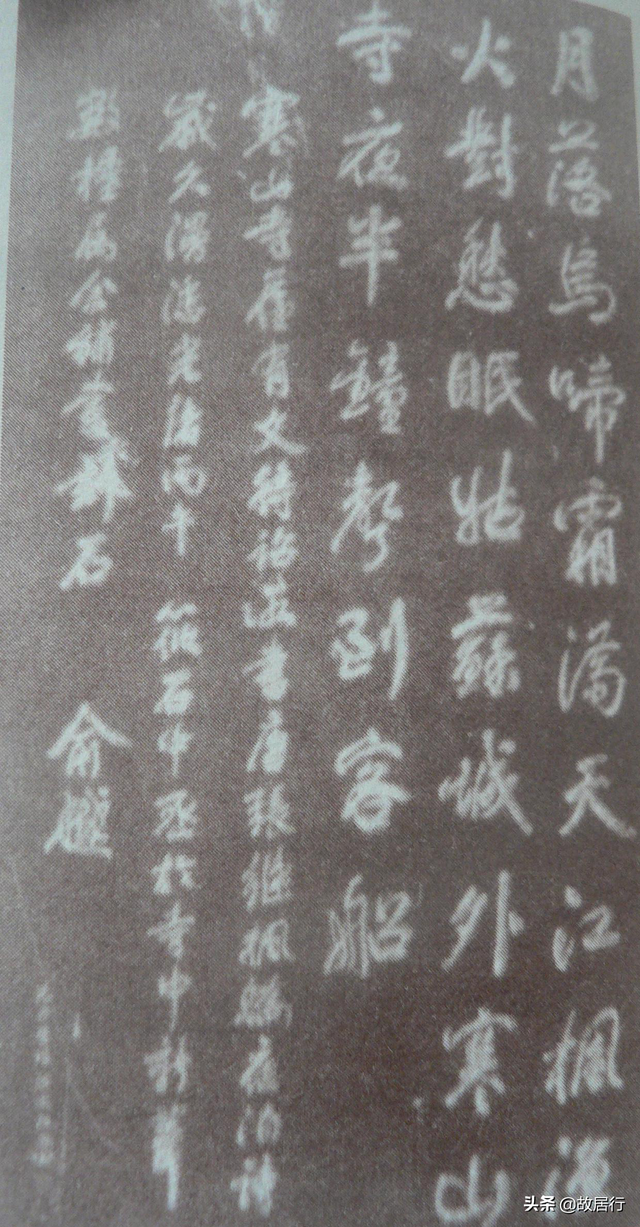 月落烏啼霜滿天江楓漁
火對愁眠姑蘇城外寒山
寺夜半鐘聲到客船
寒山寺舊有文待詔所書唐張繼楓橋夜泊詩
歲久漫漶光緒丙午 筱石中丞於寺中新葺
數楹屬余補書刻石 俞樾
头条 @故居行